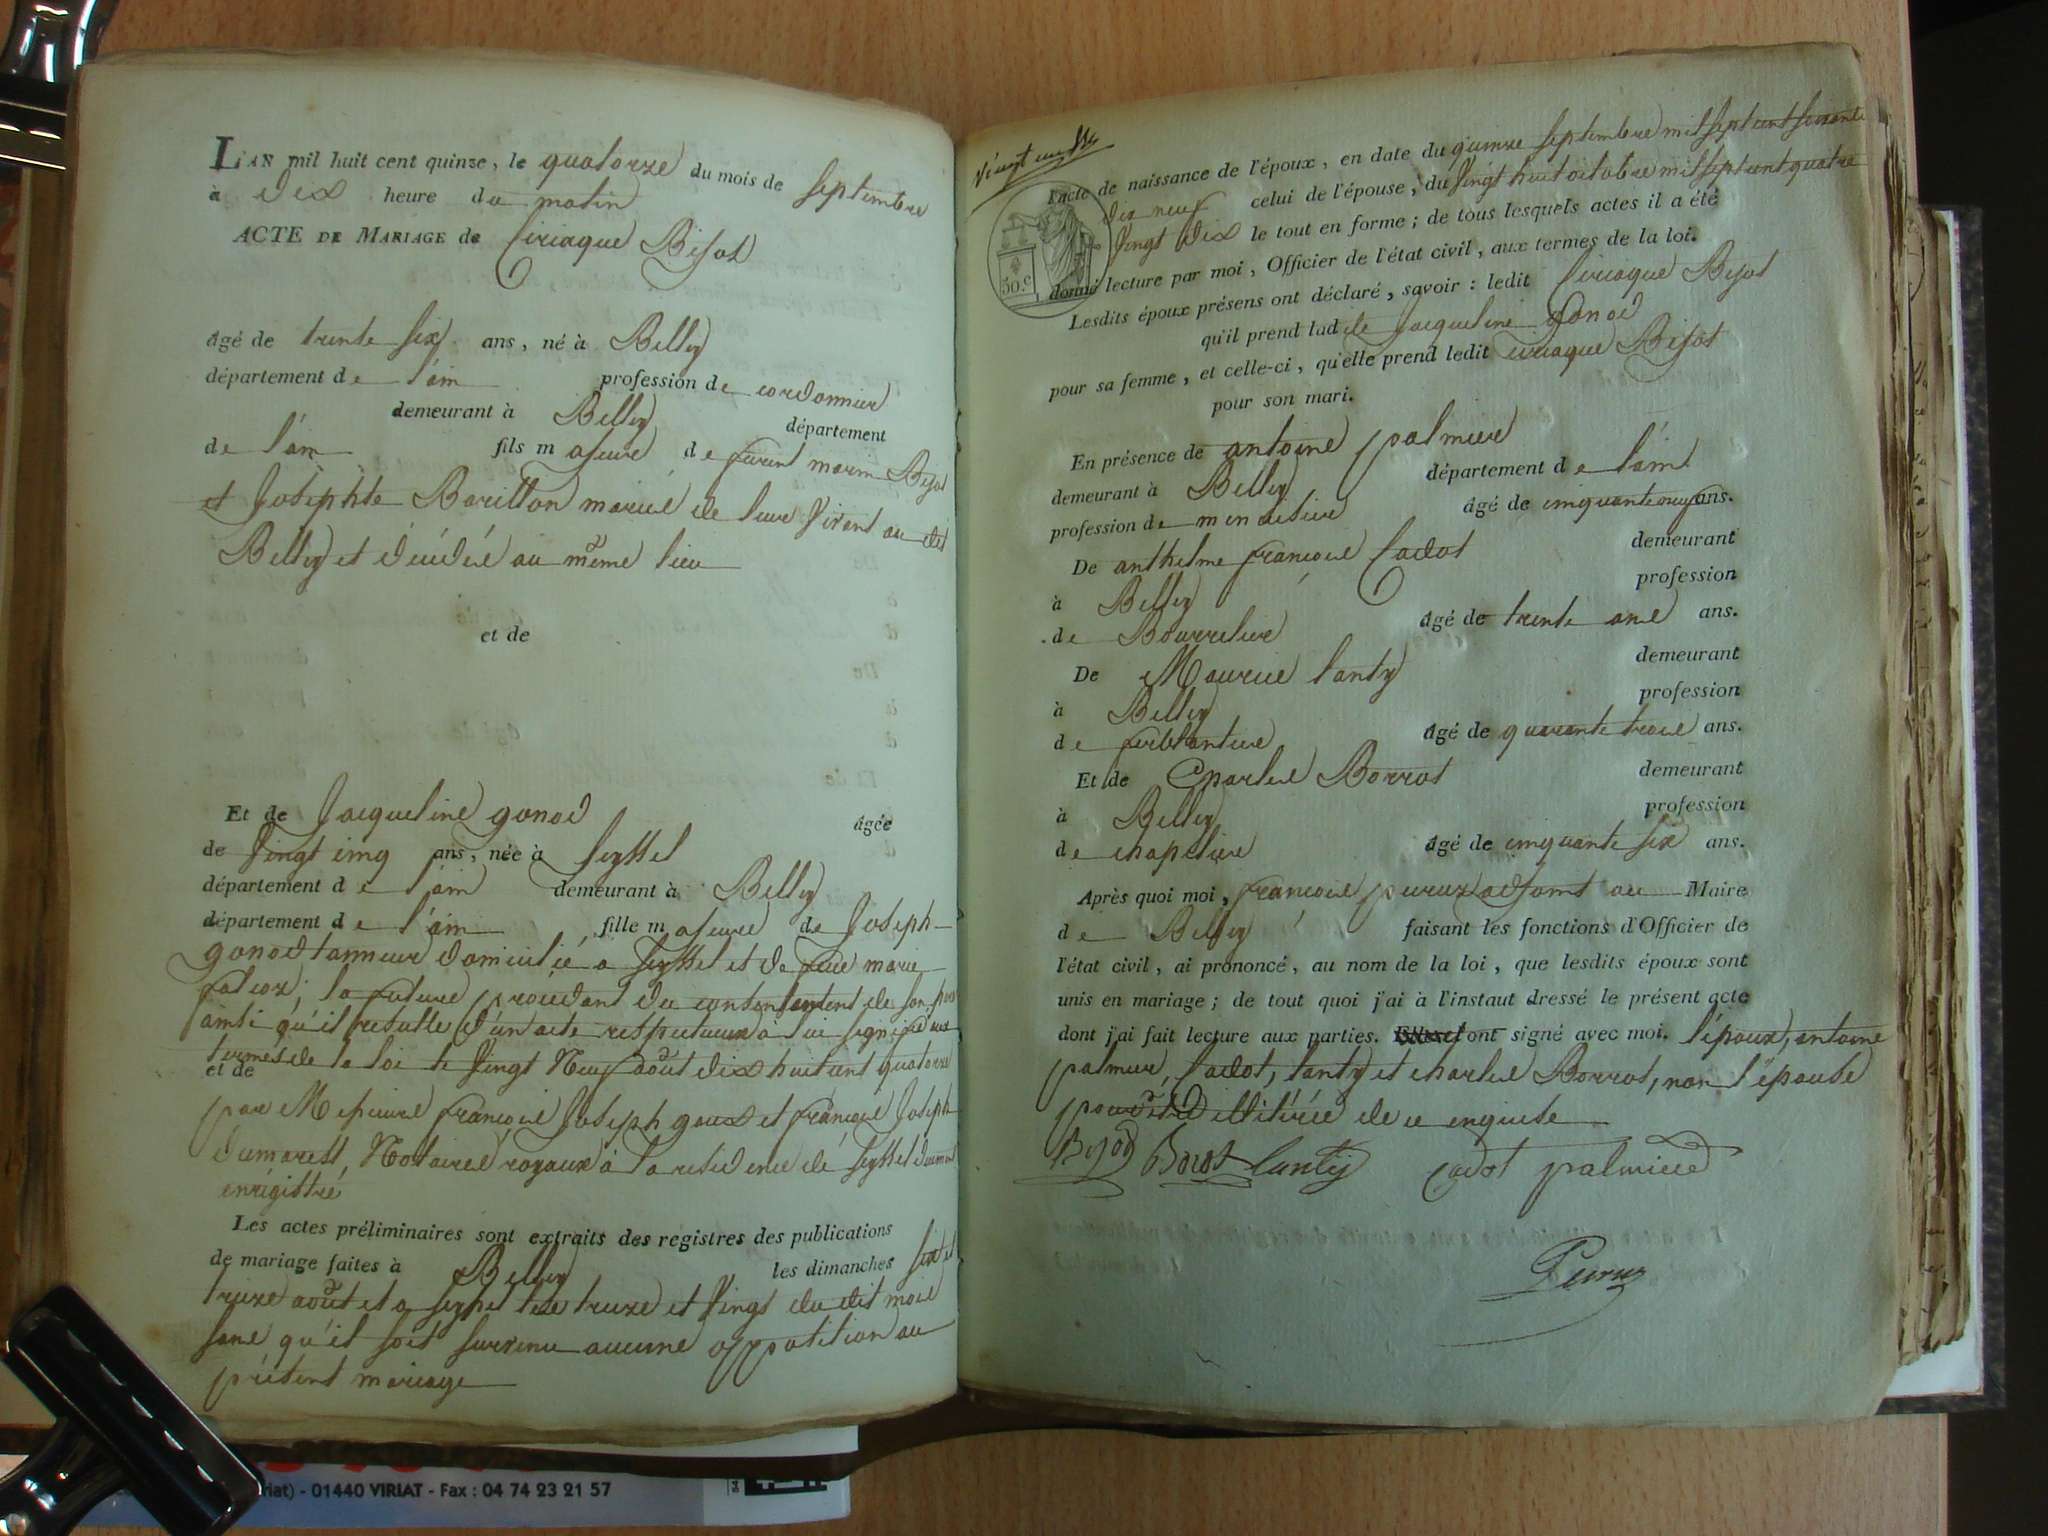 L'AN mil huit cent quinze, le quatorze du mois de septembre
à dix heure du matin
ACTE DE MARIAGE de Ciriaque Bijot
âgé de trente six ans, né à Belley
département de l'ain profession de cordonnier
demeurant à Belley département
de l'ain fils majeur de feu marin Bijot
et Josephte Barillon mariés de leur vivant au dit
Belley et décédés au même lieu
et de
Et de Jacqueline gonod âgée
de vingt cinq ans, née à Seyssel
département de l'ain demeurant à Belley
département de l'ain fille majeure de Joseph
gonod tanneur domicilié a Seyssel et de feue marie
la future procédant du consentement de son père
ainsi qu'il résulte d'un acte respectueux à lui signifié aux
termes de la loi le vingt Neuf août dix huit cent quatorze
et de
par M françois Joseph goux et françois Joseph
dumarest, Notaires royaux à la résidence de Seyssel dument
enrégistré
Les actes préliminaires sont extraits des registres des publications
de mariage faites à Belley les dimanches six et
treize août et a Seyssel les treize et vingt du dit mois
sans qu'il soit survenu aucune opposition au
présent mariage
vingt un
30.c
l'acte de naissance de l'époux, en date du quinze septembre mil sept cent soixante
dix neuf celui de l'épouse, du vingt huit octobre mil sept cent quatre
vingt dix le tout en forme; de tous lesquels actes il a été
donné lecture par moi, Officier de l'état civil, aux termes de la loi.
Lesdits époux présens ont déclaré, savoir : ledit Ciriaque Bijot
qu'il prend ladite Jacqueline gonod
pour sa femme, et celle-ci, qu'elle prend ledit ciriaque Bijot
pour son mari.
En présence de antoine palmier
demeurant à Belley département de l'ain
profession de menuisier âgé de cinquante neuf ans.
De anthelme françois Cadot demeurant
à Belley profession
de Bourrelier âgé de trente ans ans.
De Maurice lanty demeurant
à Belley profession
de ferblantier âgé de quarante trois ans.
Et de Charles Borrot demeurant
à Belley profession
de chapelier âgé de cinquante six ans.
Après quoi moi, françois peruz adjoint au Maire
de Belley faisant les fonctions d'Officier de
l'état civil, ai prononcé, au nom de la loi, que lesdits époux sont
unis en mariage; de tout quoi j'ai à l'instant dressé le présent acte
dont j'ai fait lecture aux parties. ont signé avec moi. l'époux, antoine
palmier, Cadot, lanty et charles Borrot, non l'épouse
pour être illitérée de ce enquise
Bijod Borot Lanty cadot palmier
Peruz
riat) - 01440 VIRIAT - Fax : 04 74 23 21 57